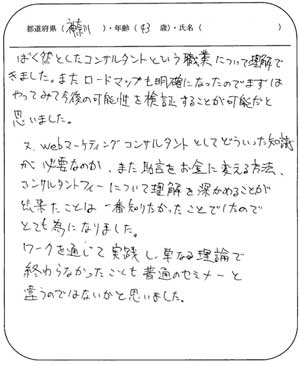 都道府県（神奈川）・年齢（43 歳）・氏名（　　　）
ばく然としたコンサルタントという職業について理解で
きました。またロードマップも明確になったのでまずは
やってみて今後の可能性を検証することが可能だと
思いました。
又、webマーケティングコンサルタントとしてどういった知識
が必要なのか、また助言をお金に変える方法、
コンサルタントフィーについて理解を深かめることが
出来たことは一番知りたかったことでしたので
とても為になりました。
ワークを通じて実践し、単なる理論で
終わらなかったことも普通のセミナーと
違うのではないかと思いました。